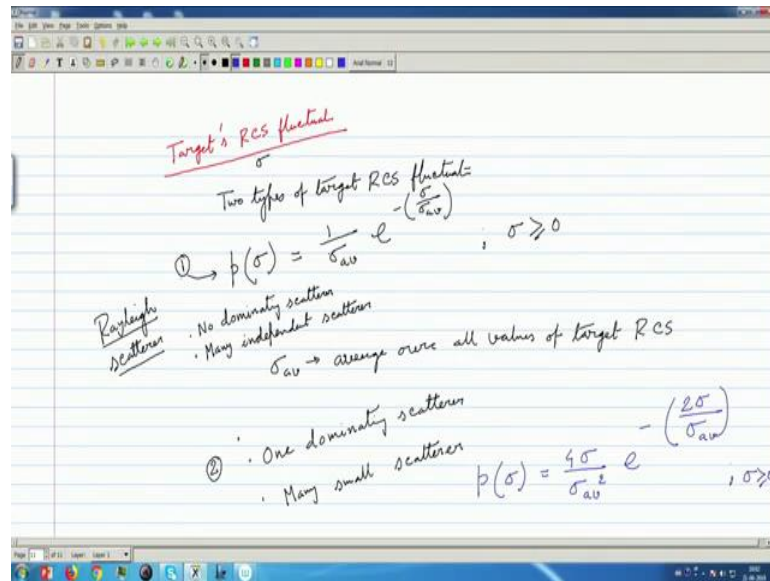 File Edit View Page Tools Options Help
Arial Normal 12
Target's RCS fluctuat.
σ
Two types of target RCS fluctuat=
① → p(σ) = 1/σav e^-(σ/σav) ; σ ≥ 0
Rayleigh scatterer
· No dominatig scatterer
· Many independent scatterer
σav → average over all values of target RCS
② · One dominating scatterer
· Many small scatterer
p(σ) = 4σ/σav² e^-(2σ/σav) , σ≥0
Page 11 of 11 Layer: Layer 1